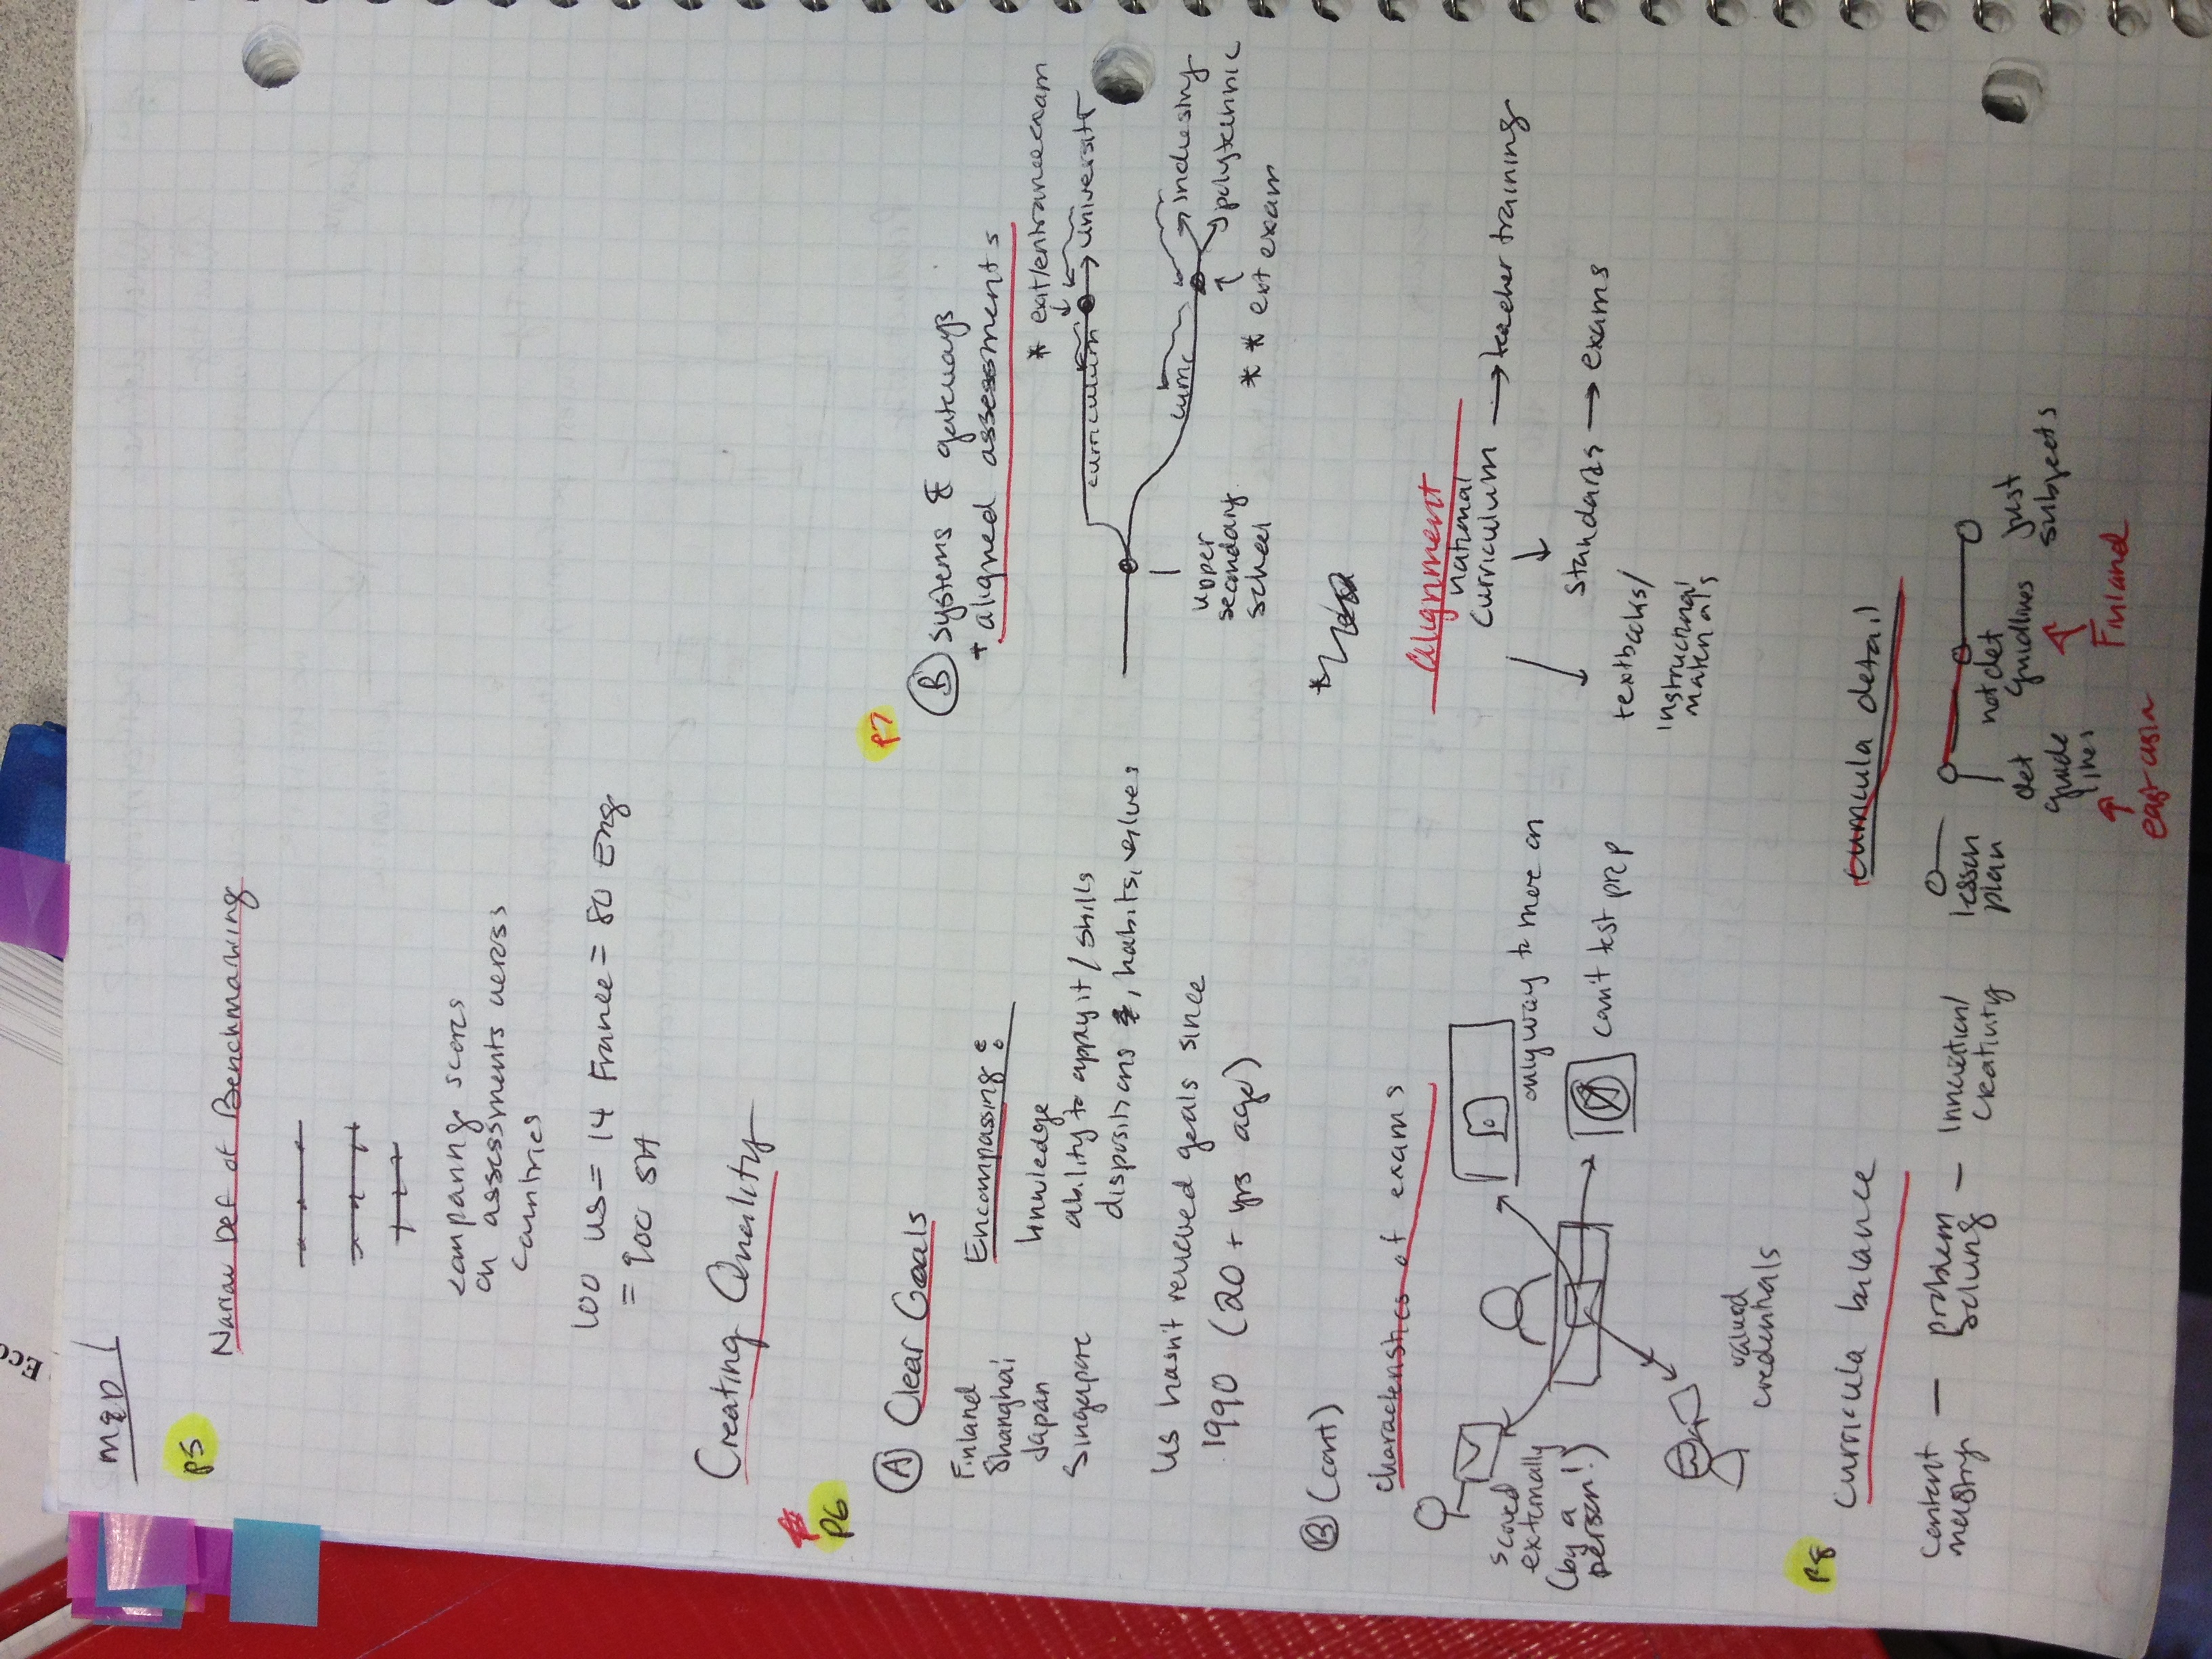 Eco
M&D 1
p5
Narrow Def of Benchmarking
comparing scores
on assessments across
countries
100 US = 14 France = 80 Eng
= 900 SH
Creating Quality
p6
A Clear Goals
Finland
Shanghai
Japan
Singapore
Encompassing:
knwledge
ability to apply it / skills
dispositions, habits, values
US hasn't renewed goals since
1990 (20 + yrs ago)
p7
B systems & gateways
+ aligned assessments
* exit/entrance exam
curriculum
university
upper
secondary
school
curric
industry
polytechnic
* * ext exam
B (cont)
characteristics of exams
scored
externally
(by a
person!)
only way to move on
can't test prep
valued
credentials
Alignment
national
curriculum → teacher training
standards → exams
textbooks/
instructional
materials
p8
curricula balance
content
mastry
— problem
solving
— Innovation/
creativity
curricula detail
lesson
plan
det
guide
lines
not det
guidlines
just
subjects
east asia
Finland